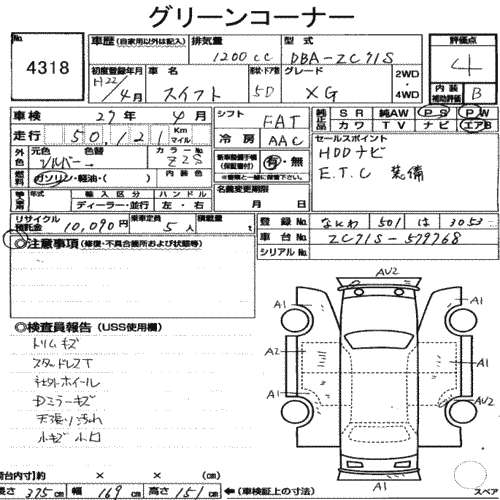 グリーンコーナー
No. 4318
車歴 (自家用以外は記入) 排気量 1200cc 型式 DBA-ZC71S 評価点 4
初度登録年月 H22/4月 車名 スイフト 形状・ドア数 5D グレード XG 2WD 4WD 内装補助評価 B
車検 27年 4月 シフト FAT 純正品 SR 純AW PS PW
カワ TV ナビ エアB
走行 50,121 Km マイル 冷房 AAC セールスポイント
外色 元色 シルバー→ 色替 カラーNo. Z2S 新車整備手帳(保証書) 有・無 HDDナビ
燃料 ガソリン・軽油・( ) 内装色 ※書類と一緒に保管して下さい E.T.C 装備
輸入車 年式 輸入区分 ハンドル 名義変更期限
ディーラー・並行 左・右 月 日
リサイクル預託金 10,090円 乗車定員 5人 積載量 t 登録No. なにわ 501 は 3053
車台No. ZC71S-579768
シリアルNo.
◎注意事項 (修復・不具合箇所および状態等)
AV2
A1 A1
◎検査員報告 (USS使用欄)
トリムキズ
A2 A1
スタッドレスT
キャップホイール
Dミラーキズ
AV2
天張り汚れ
A1
小キズ 小凹
A1
荷台内寸)約 × × (cm)
長さ 375cm 幅 169cm 高さ 151cm ←(車検証上の寸法) スペア